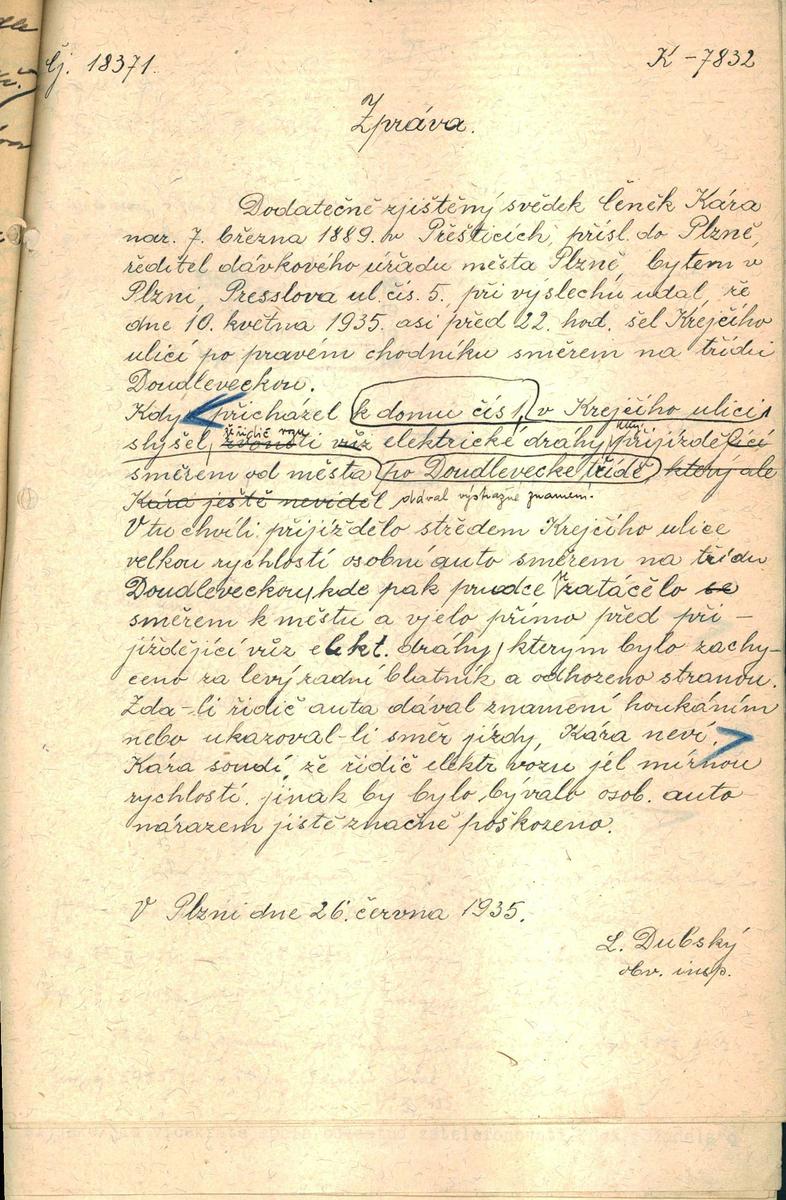 Čj. 18371.
K-7832
Zpráva.
Dodatečně zjištěný svědek Čeněk Kára
nar. 7. března 1889. v Přešticích, přísl. do Plzně,
ředitel dávkového úřadu města Plzně, bytem v
Plzni, Presslova ul. čís. 5., při výslechu udal, že
dne 10. května 1935. asi před 22. hod. šel Krejčího
ulicí po pravém chodníku směrem na třídu
Doudleveckou.
Kdy přicházel k domu čís 1, v Krejčího ulici,
že řidič vozu
slyšel, zvoniti vůz elektrické dráhy, přijíždějící
směrem od města po Doudlevecké třídě, který ale
Kára ještě neviděl dával výstražné znamení.
V tu chvíli přijíždělo středem Krejčího ulice
velkou rychlostí osobní auto směrem na třídu
Doudleveckou, kde pak prudce zatáčelo se
směrem k městu a vjelo přímo před při-
jíždějící vůz elekt. dráhy, kterým bylo zachy-
ceno za levý zadní blatník a odhozeno stranou.
Zda-li řidič auta dával znamení houkáním
nebo ukazoval-li směr jízdy, Kára neví.
Kára soudí, že řidič elektr. vozu jel mírnou
rychlostí, jinak by bylo bývalo osob. auto
nárazem jistě značně poškozeno.
V Plzni dne 26. června 1935.
L. Dubský
obv. insp.